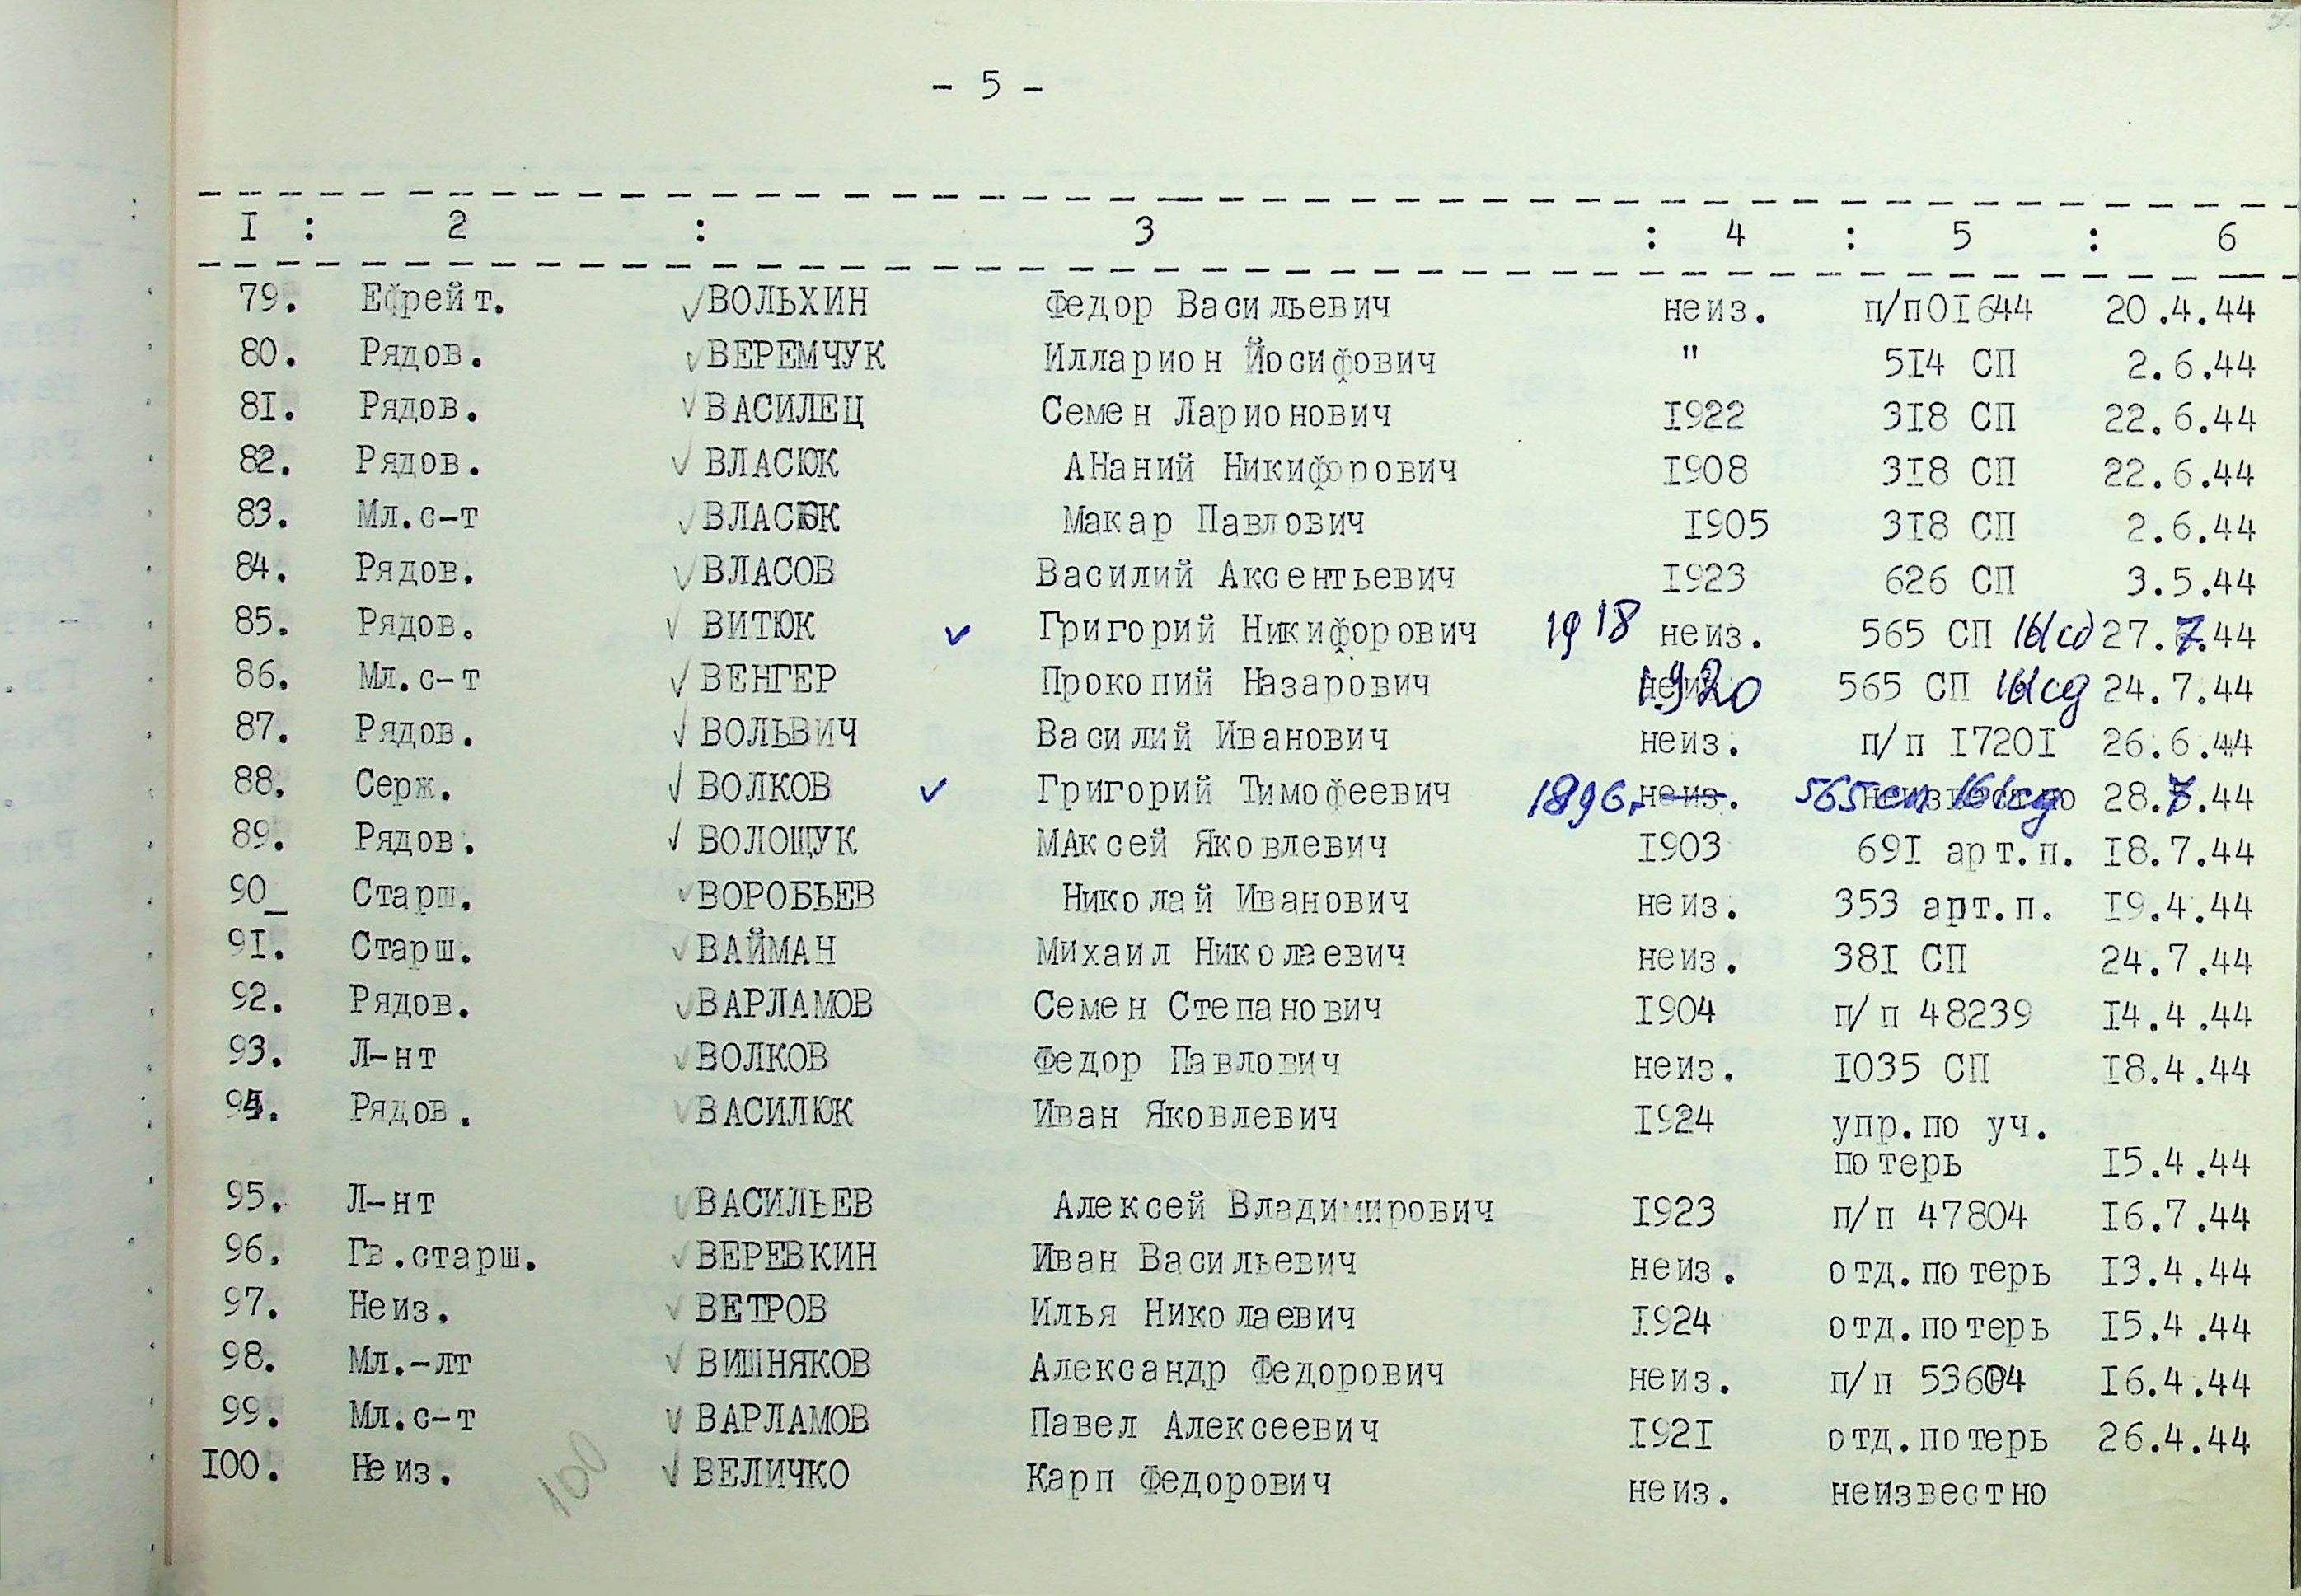 - 5 -
I : 2 : 3 : 4 : 5 : 6
79. Ефрейт. ВОЛЬХИН Федор Васильевич неиз. п/п01644 20.4.44
80. Рядов. ВЕРЕМЧУК Илларион Йосифович " 514 СП 2.6.44
81. Рядов. ВАСИЛЕЦ Семен Ларионович 1922 318 СП 22.6.44
82. Рядов. ВЛАСЮК АНаний Никифорович 1908 318 СП 22.6.44
83. Мл.с-т ВЛАСЮК Макар Павлович 1905 318 СП 2.6.44
84. Рядов. ВЛАСОВ Василий Аксентьевич 1923 626 СП 3.5.44
85. Рядов. ВИТЮК Григорий Никифорович 1918 неиз. 565 СП 161 сд 27.7.44
86. Мл.с-т ВЕНГЕР Прокопий Назарович 1920 565 СП 161 сд 24.7.44
87. Рядов. ВОЛЬВИЧ Василий Иванович неиз. п/п 17201 26.6.44
88. Серж. ВОЛКОВ Григорий Тимофеевич 1896. неиз. 565 сп 161 сд 28.7.44
89. Рядов. ВОЛОЩУК МАксей Яковлевич 1903 691 арт.п. 18.7.44
90_ Старш. ВОРОБЬЕВ Николай Иванович неиз. 353 арт.п. 19.4.44
91. Старш. ВАЙМАН Михаил Николаевич неиз. 381 СП 24.7.44
92. Рядов. ВАРЛАМОВ Семен Степанович 1904 п/п 48239 14.4.44
93. Л-нт ВОЛКОВ Федор Павлович неиз. 1035 СП 18.4.44
94. Рядов. ВАСИЛЮК Иван Яковлевич 1924 упр.по уч.
потерь 15.4.44
95. Л-нт ВАСИЛЬЕВ Алексей Владимирович 1923 п/п 47804 16.7.44
96. Гв.старш. ВЕРЕВКИН Иван Васильевич неиз. отд.потерь 13.4.44
97. Неиз. ВЕТРОВ Илья Николаевич 1924 отд.потерь 15.4.44
98. Мл.-лт ВИШНЯКОВ Александр Федорович неиз. п/п 53604 16.4.44
99. Мл.с-т ВАРЛАМОВ Павел Алексеевич 1921 отд.потерь 26.4.44
100. Неиз. 100 ВЕЛИЧКО Карп Федорович неиз. неизвестно